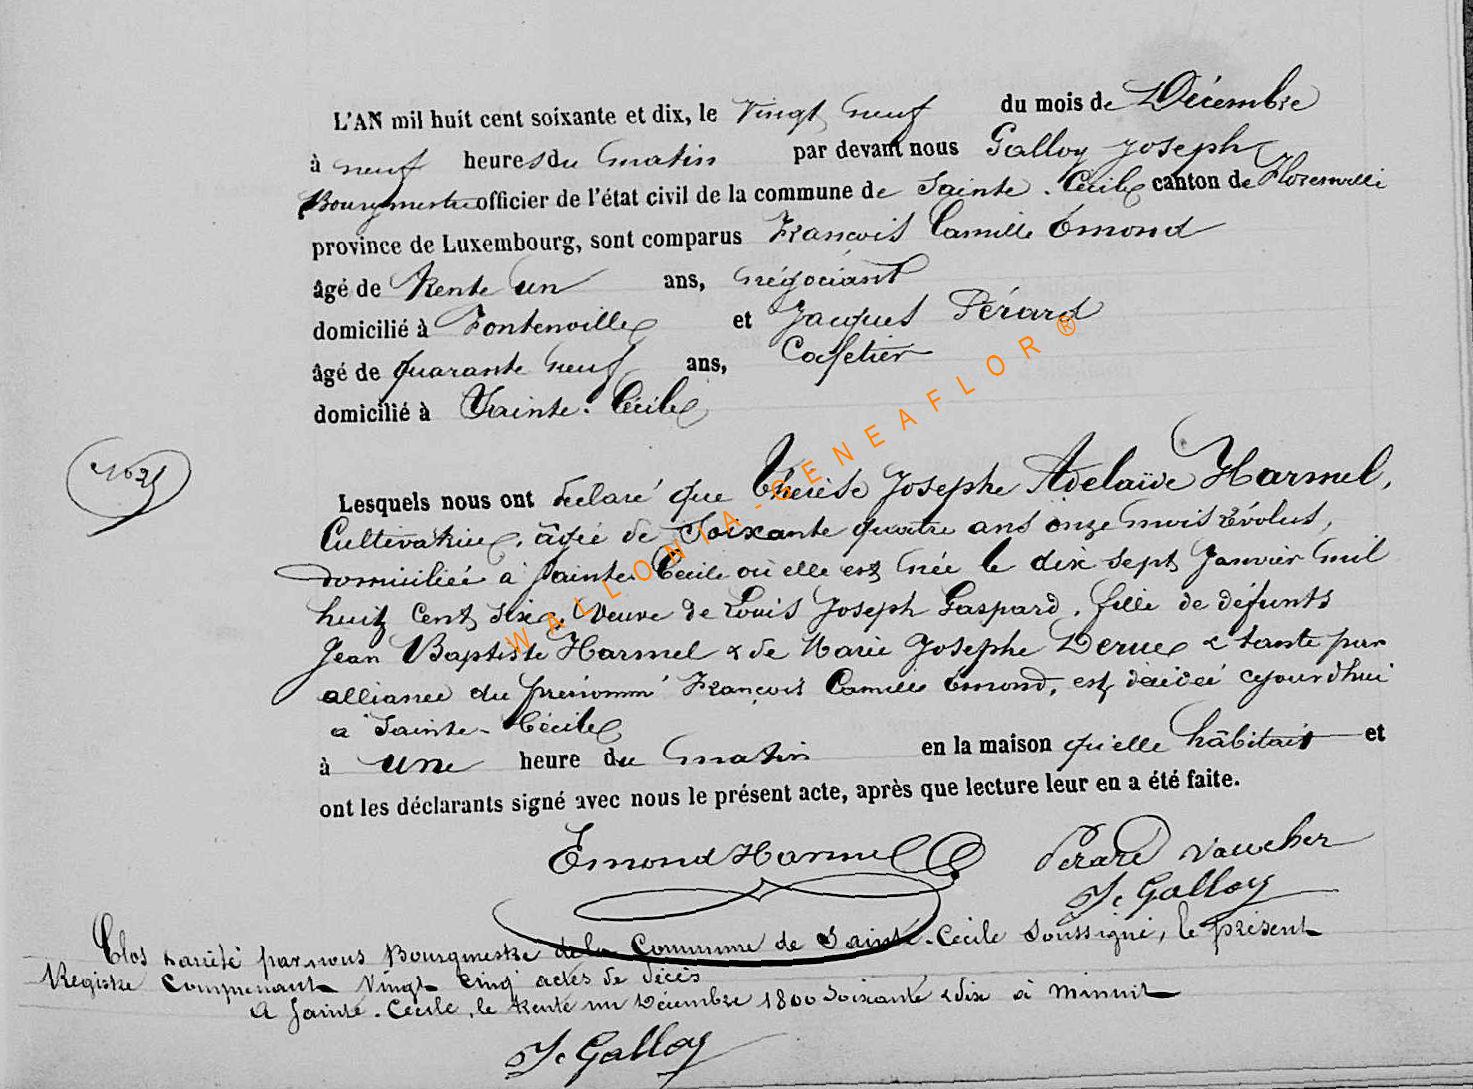 L'AN mil huit cent soixante et dix, le Vingt neuf du mois de Décembre
à neuf heures du matin par devant nous Galloy Joseph
Bourgmestre officier de l'état civil de la commune de Sainte-Cécile canton de Florenville
province de Luxembourg, sont comparus François Camille Emond
âgé de trente un ans, négociant
domicilié à Fontenoille et Jacques Pérard
âgé de quarante neuf ans, Cafetier
domicilié à Sainte-Cécile
Lesquels nous ont déclaré que Thérèse Josephe Adelaïde Harmel,
Cultivatrice, âgée de Soixante quatre ans onze mois Évolus,
domiciliée à Sainte Cécile où elle est née le dix sept Janvier mil
huit Cent six, Veuve de Louis Joseph Gaspard, fille de défunts
Jean Baptiste Harmel & de Marie Josephe Derue & tante par
alliance du prénommé François Camille Emond, est décédée cejourd'hui
à Sainte-Cécile
à une heure du matin en la maison qu'elle habitait et
ont les déclarants signé avec nous le présent acte, après que lecture leur en a été faite.
Emond Harmel Pérard Vaucher
J. Galloy
Clos & arrêté par nous Bourgmestre de la Commune de Sainte-Cécile Soussigné, le présent
Registre Comprenant Vingt cinq actes de décès
A Sainte-Cécile, le trente un Décembre 1800 Soixante & dix à minuit
J. Galloy
WALLONIA-GENEAFLOR®